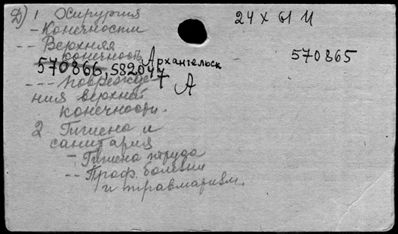 Д) 1 Хирургия
24 X 61 М
- Конечности
-- Верхняя
конечность
Архангельск
570865
570866, 582047
7 А
--- Поврежде-
ния верхней
конечности.
2 Гигиена и
санитария
- Гигиена труда
-- Проф. болезни
и травматизм.